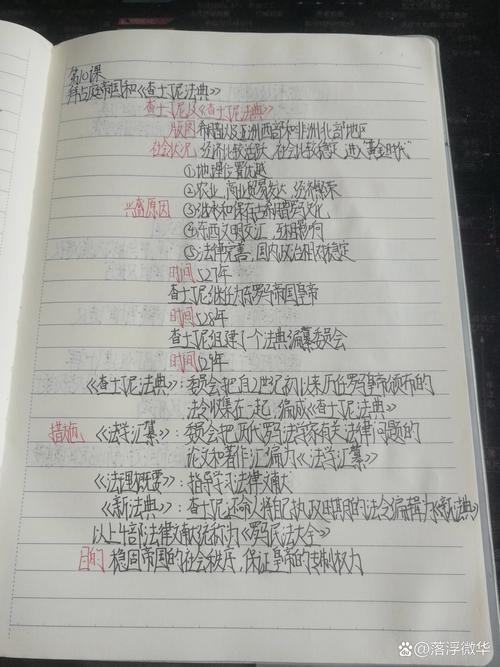 第10课
拜占庭帝国和《查士丁尼法典》
查士丁尼及《查士丁尼法典》
版图 希腊以及亚洲西部和非洲北部地区
社会状况 经济比较活跃,社会比较稳定,进入"黄金时代"
①地理位置优越
②农业,商业贸易发达,经济繁荣
兴盛原因 ③继承和保存古希腊罗马文化
④东西文明交汇,互相影响
⑤法律完善,国内政治相对稳定
时间 527年
查士丁尼继任为东罗马帝国皇帝
时间 528年
查士丁尼组建了一个法典编纂委员会
时间 529年
《查士丁尼法典》:委员会把自2世纪初以来历任罗马皇帝颁布的
法令收集在一起,编成《查士丁尼法典》
措施 《法学汇纂》:委员会把历代罗马法学家有关法律问题的
论文和著作汇编为《法学汇纂》
《法理概要》:指导学习法律文献
《新法典》:查士丁尼还命人将自己执政时期的法令编辑为《新法典》
以上4部法律文献统称为《罗马民法大全》
目的 稳固帝国的社会秩序,保证皇帝的专制权力
Baidu百科@落浮微华